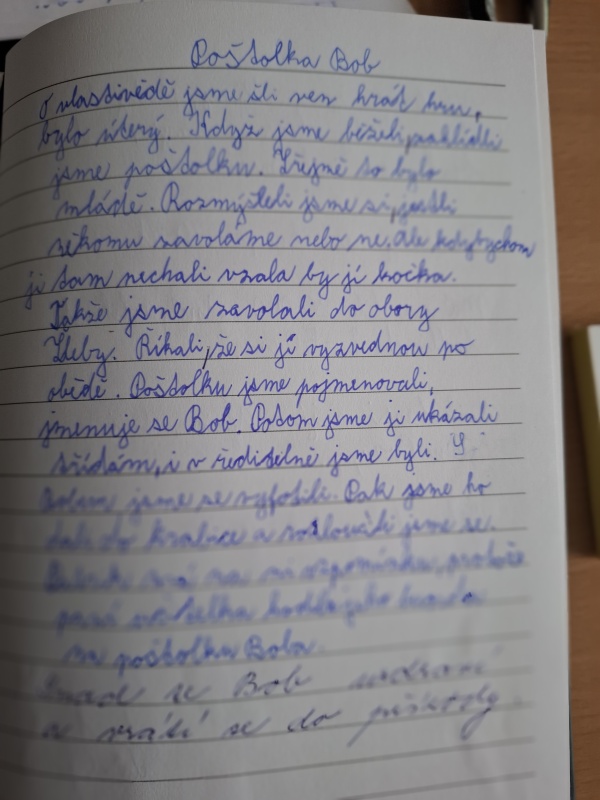 Poštolka Bob
O vlastivědě jsme šli ven hrát hru,
bylo úterý. Když jsme běželi, zahlídli
jsme poštolku. Zřejmě to bylo
mládě. Rozmýšleli jsme si, jestli
někomu zavoláme nebo ne. Ale kdybychom
ji tam nechali vzala by jí kočka.
Takže jsme zavolali do obory
Žleby. Říkali, že si jí vyzvednou po
obědě. Poštolku jsme pojmenovali,
jmenuje se Bob. Potom jsme ji ukázali
třídám, i v ředitelně jsme byli. S
Bobem jsme se vyfotili. Pak jsme ho
dali do krabice a rozloučili jsme se.
na vzpomínku, protože
paní učitelka
na poštolku Boba.
Snad se Bob uzdraví
a vrátí se do přírody.